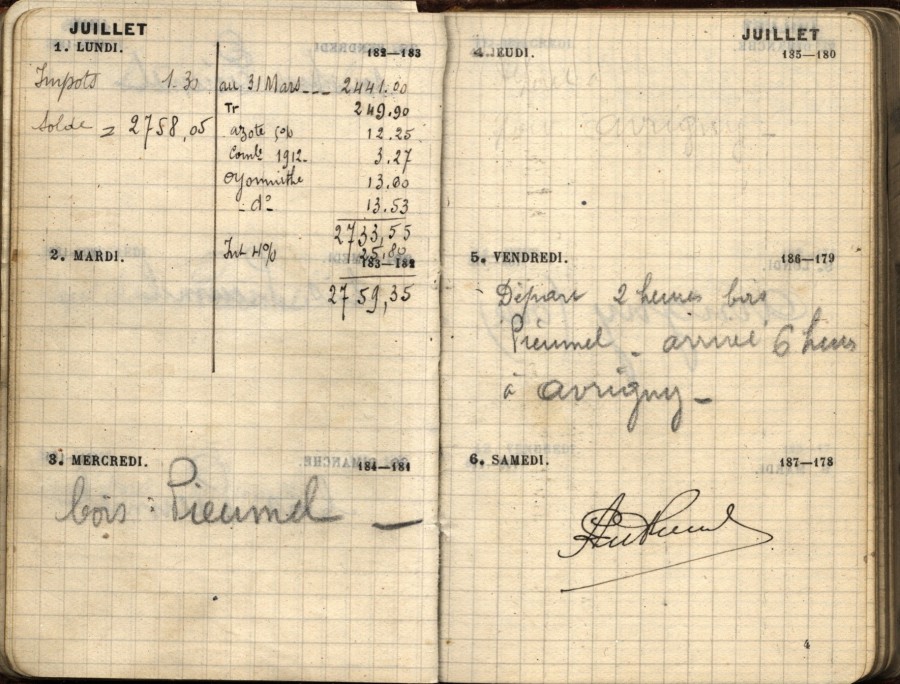 JUILLET
1. LUNDI. 182—183
Impots 1.30 au 31 Mars --- 2441.00
Tr 249.90
Solde = 2758,05
azote 5% 12.25
1912 - 3.27
13.00
- do - 13.53
2733,55
2. MARDI. 183—182
Int 4% 25,80
2759,35
3. MERCREDI. 184—181
bois : Pieumel —
JUILLET
4. JEUDI. 185—180
avrigny —
5. VENDREDI. 186—179
- Départ 2 heures bois
Pieumel - arrivé 6 heures
à avrigny —
6. SAMEDI. 187—178
4